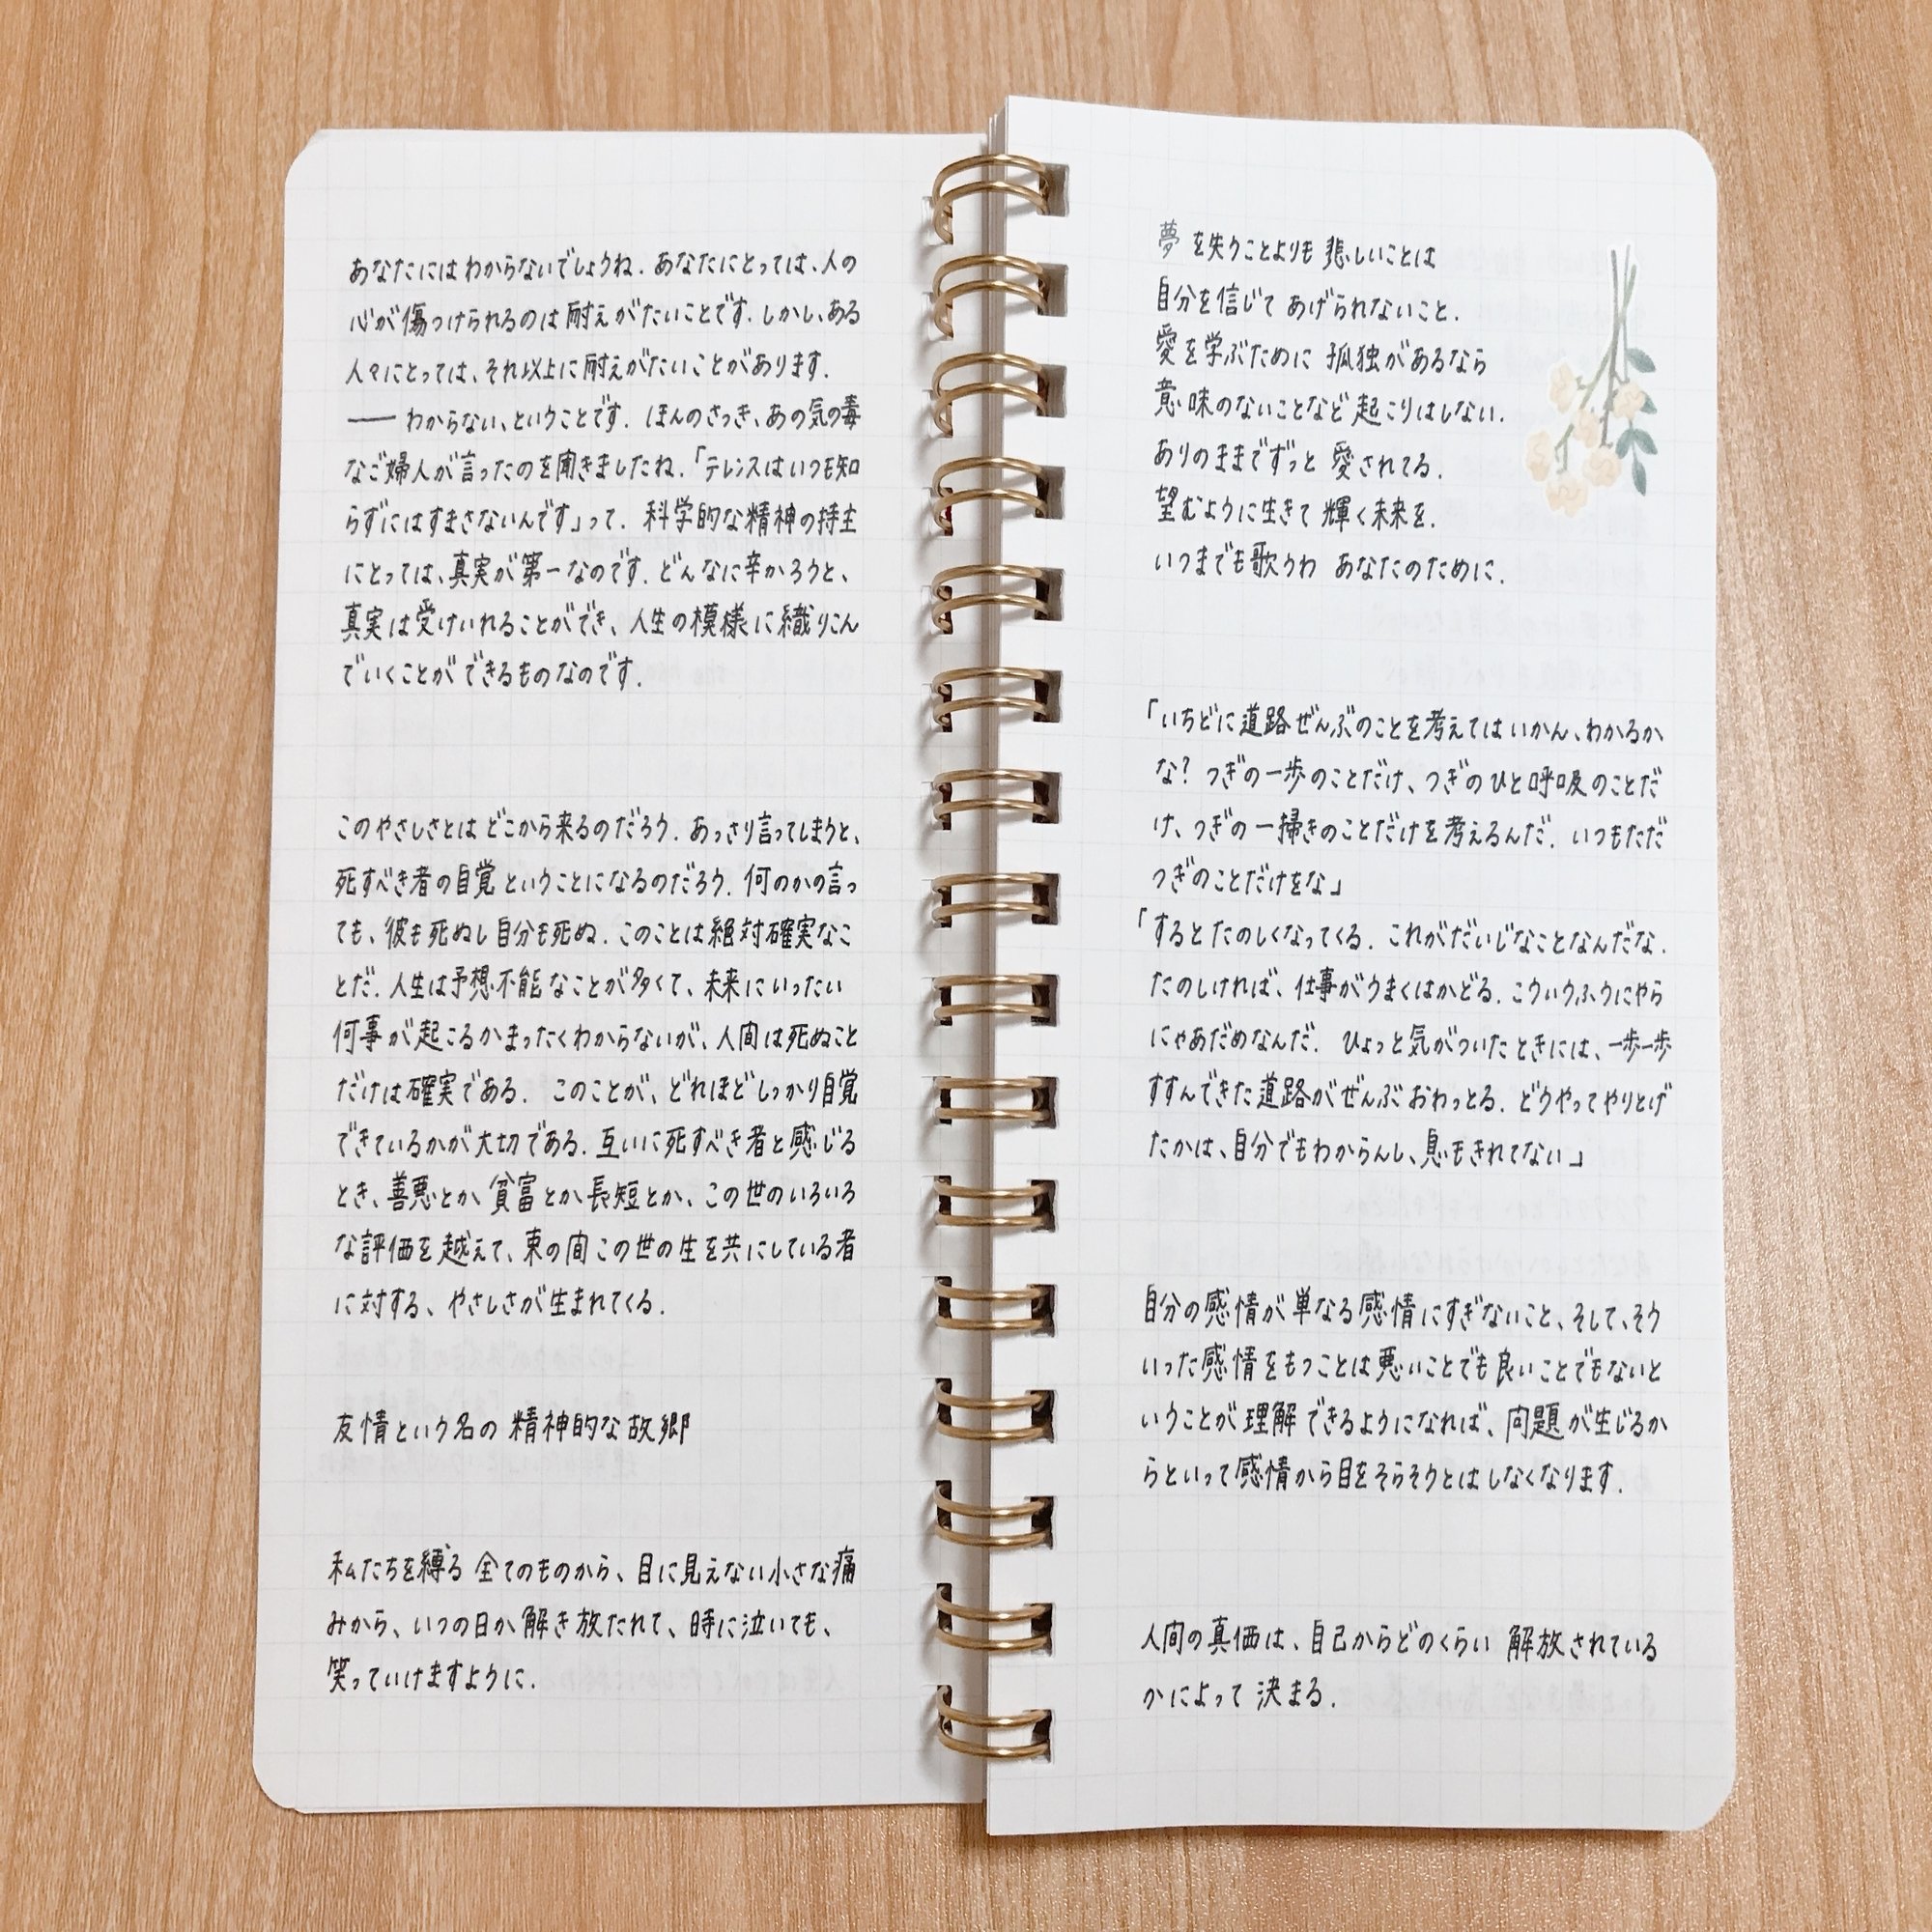 あなたにはわからないでしょうね. あなたにとっては、人の
心が傷つけられるのは耐えがたいことです. しかし、ある
人々にとっては、それ以上に耐えがたいことがあります.
―― わからない、ということです. ほんのさっき、あの気の毒
なご婦人が言ったのを聞きましたね.「テレンスはいつも知
らずにはすまさないんです」って. 科学的な精神の持主
にとっては、真実が第一なのです. どんなに辛かろうと、
真実は受けいれることができ、人生の模様に織りこん
でいくことができるものなのです.
このやさしさとはどこから来るのだろう. あっさり言ってしまうと、
死すべき者の自覚ということになるのだろう. 何のかの言っ
ても、彼も死ぬし自分も死ぬ. このことは絶対確実なこ
とだ. 人生は予想不能なことが多くて、未来にいったい
何事が起こるかまったくわからないが、人間は死ぬこと
だけは確実である. このことが、どれほどしっかり自覚
できているかが大切である. 互いに死すべき者と感じる
とき、善悪とか貧富とか長短とか、この世のいろいろ
な評価を越えて、束の間この世の生を共にしている者
に対する、やさしさが生まれてくる.
友情という名の精神的な故郷
私たちを縛る全てのものから、目に見えない小さな痛
みから、いつの日か解き放たれて、時に泣いても、
笑っていけますように.
夢を失うことよりも悲しいことは
自分を信じてあげられないこと.
愛を学ぶために孤独があるなら
意味のないことなど起こりはしない.
ありのままでずっと愛されてる.
望むように生きて輝く未来を.
いつまでも歌うわ あなたのために.
「いちどに道路ぜんぶのことを考えてはいかん、わかるか
な? つぎの一歩のことだけ、つぎのひと呼吸のことだ
け、つぎの一掃きのことだけを考えるんだ. いつもただ
つぎのことだけをな」
「するとたのしくなってくる. これがだいじなことなんだな.
たのしければ、仕事がうまくはかどる. こういうふうにやら
にゃあだめなんだ. ひょっと気がついたときには、一歩一歩
すすんできた道路がぜんぶおわっとる. どうやってやりとげ
たかは、自分でもわからんし、息もきれてない」
自分の感情が単なる感情にすぎないこと、そして、そう
いった感情をもつことは悪いことでも良いことでもないと
いうことが理解できるようになれば、問題が生じるか
らといって感情から目をそらそうとはしなくなります.
人間の真価は、自己からどのくらい解放されている
かによって決まる.